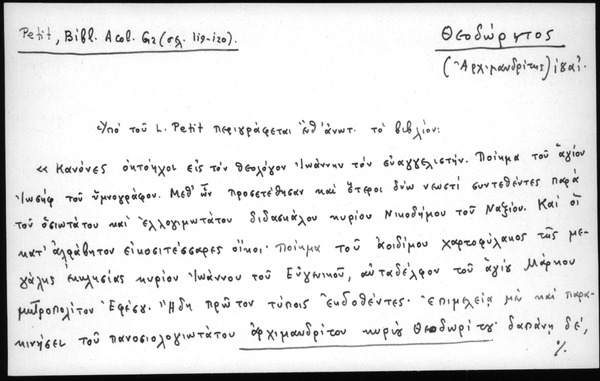 Petit, Bibl. Acol. Gr2 (σελ. 119-120).
Θεοδώρητος
(Ἀρχιμανδρίτης)
Ὑπό τοῦ L. Petit περιγράφεται ἔνθ' ἀνωτ. τό βιβλίον:
«Κανόνες ὀκτόηχοι εἰς τόν θεολόγον Ἰωάννην τόν εὐαγγελιστήν. Ποίημα τοῦ ἁγίου
Ἰωσήφ τοῦ ὑμνογράφου. Μεθ' ὧν προσετέθησαν καί ἕτεροι δύω νεωστί συντεθέντες παρά
τοῦ ὁσιωτάτου καί ἐλλογιμωτάτου διδασκάλου κυρίου Νικοδήμου τοῦ Ναξίου. Καί οἱ
κατ' ἀλφάβητον εἰκοσιτέσσαρες οἶκοι. Ποίημα τοῦ ἀοιδίμου χαρτοφύλακος τῆς με-
γάλης ἐκκλησίας κυρίου Ἰωάννου τοῦ Εὐγενικοῦ, αὐταδέλφου τοῦ ἁγίου Μάρκου
μητροπολίτου Ἐφέσου. Ἤδη πρῶτον τύποις ἐκδοθέντες. Ἐπιμελείᾳ μέν καί παρα-
κινήσει τοῦ πανοσιολογιωτάτου ἀρχιμανδρίτου κυρίου Θεοδωρίτου· δαπάνῃ δέ,
%